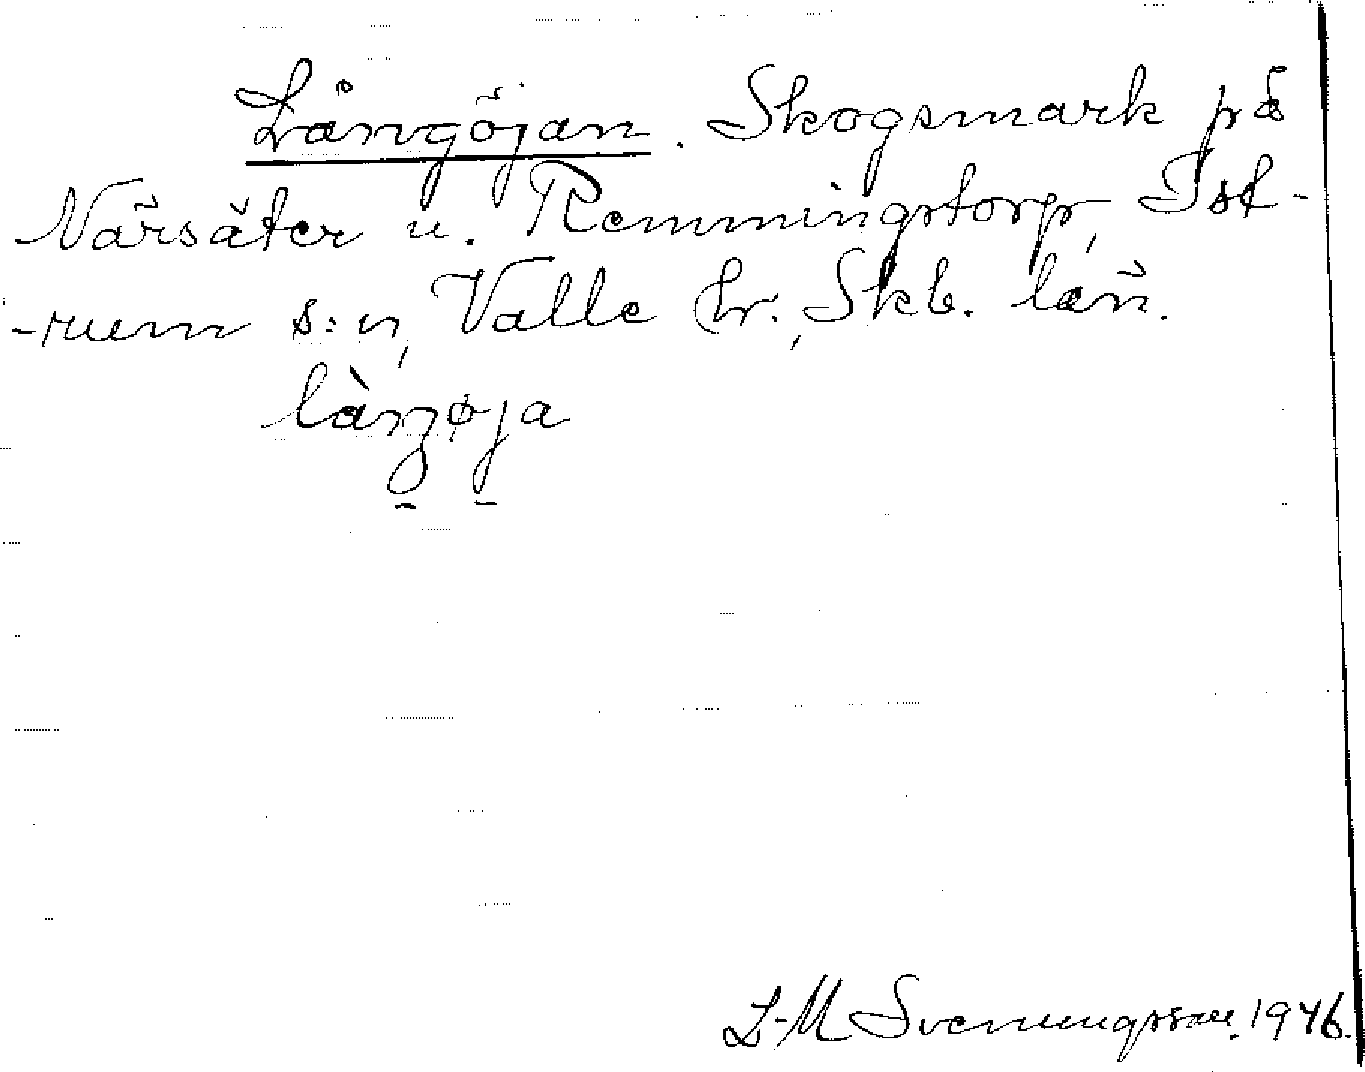 Långöjan. Skogsmark på
Närsäter u. Remmingstorp, Ist-
-rum s:n, Valle hr., Skb. län.
làŋøja
L-M Svenningsson. 1946.